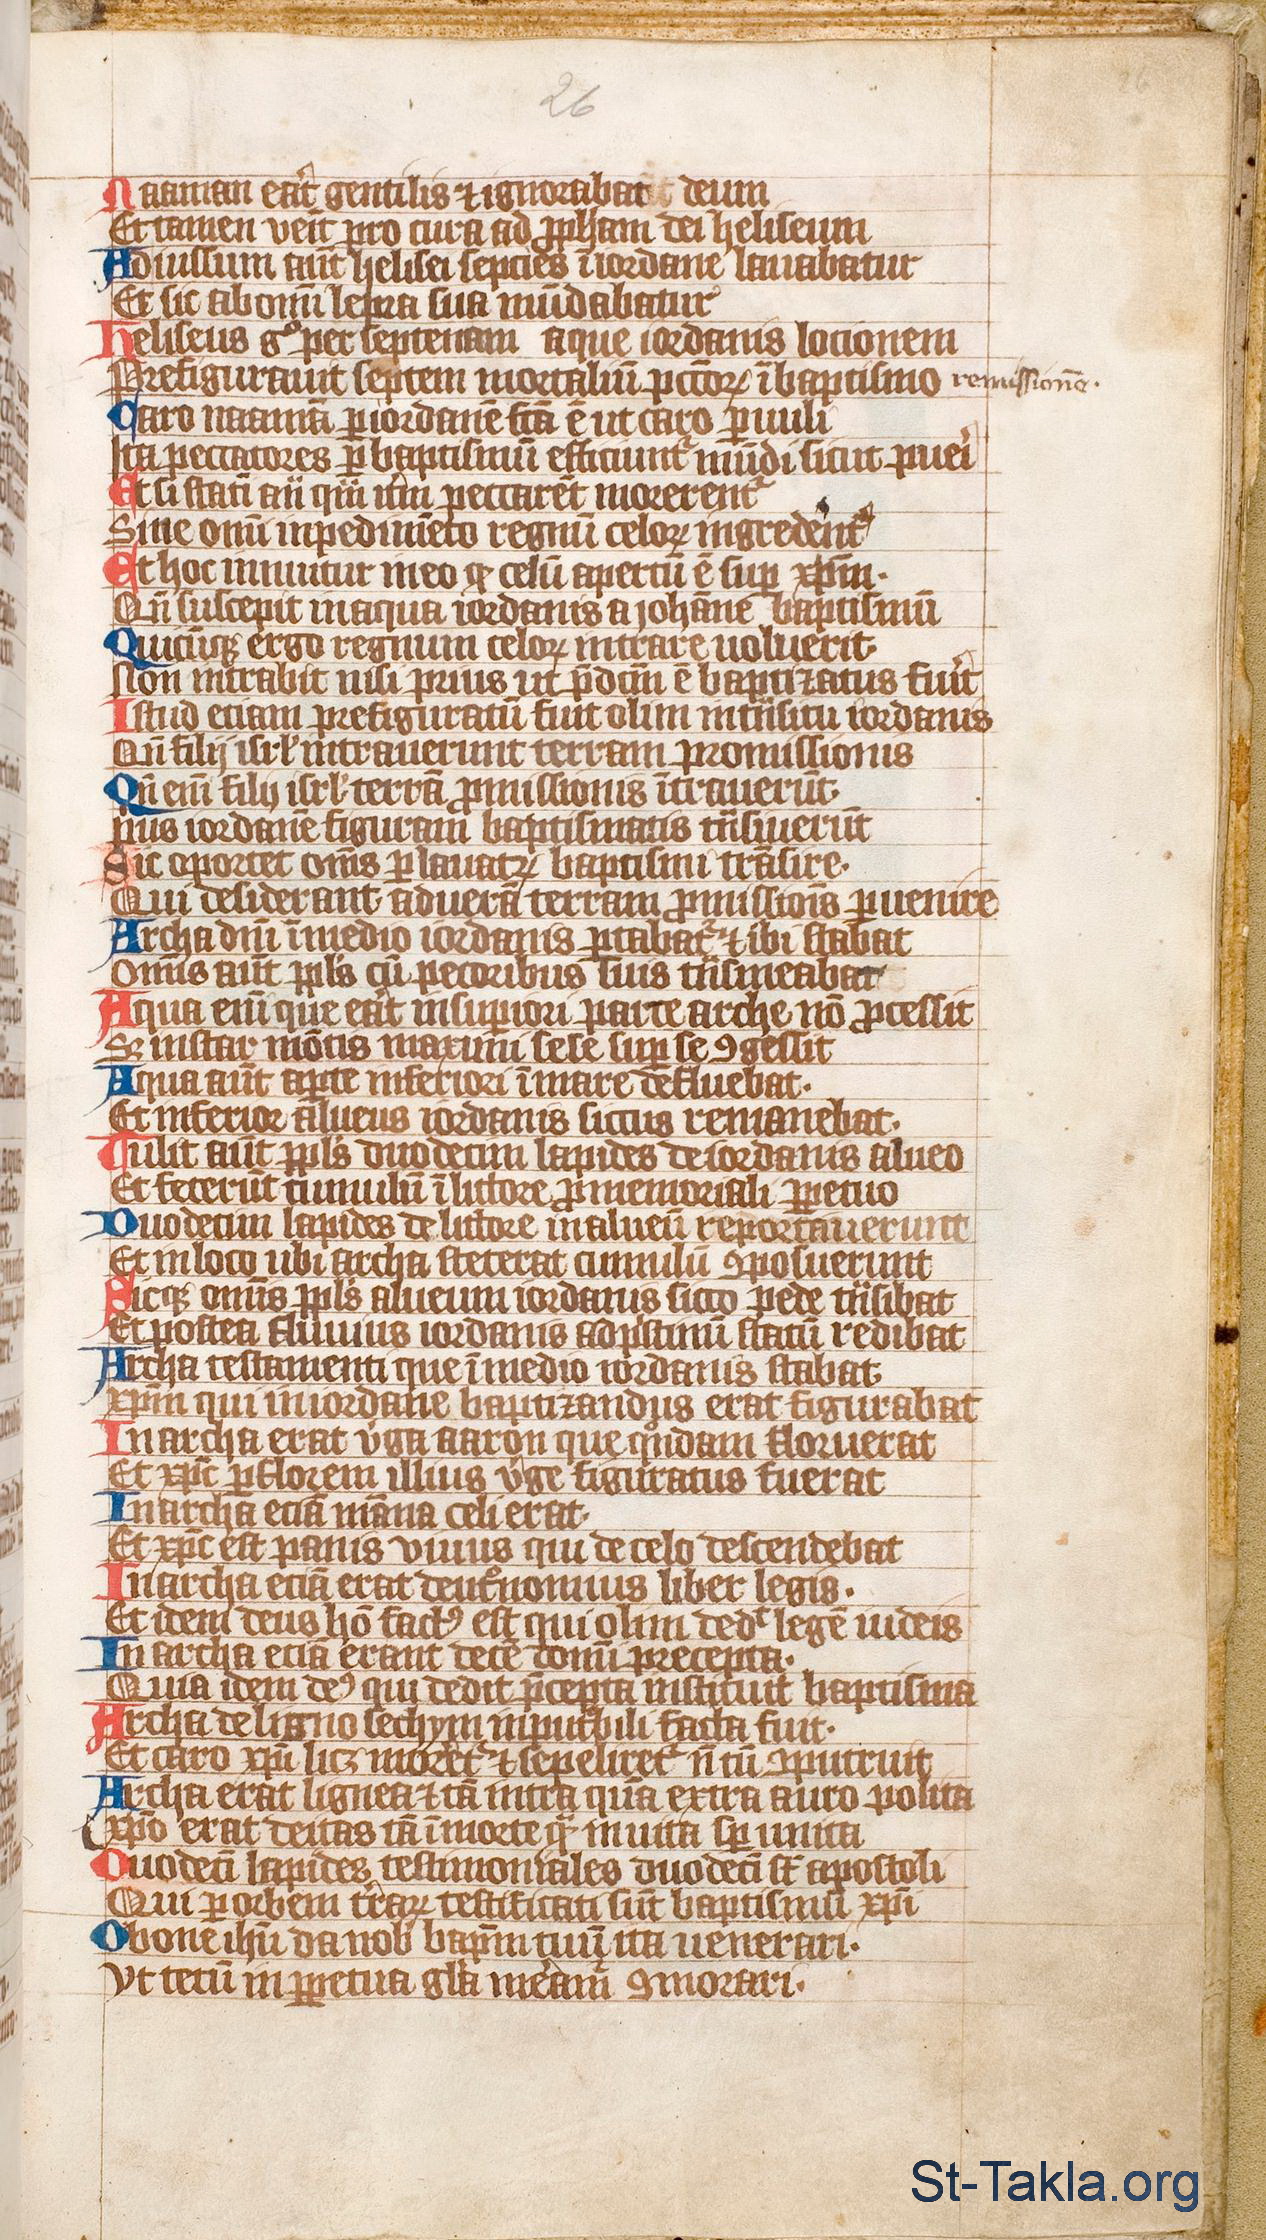 26
Naaman erat̄ gentilis ⁊ ignorabat deum
Et tamen venit̄ pro cura ad ꝓph̄am dei heliseum
Ad iussum aūt helisei septies ī iordane lauabatur
Et sic ab omī lepra sua mūdabatur
Heliseus gͦ per septenam aque iordanis locionem
Prefigurauit septem mortaliū pcc̄oꝝ ī baptismo remissionē.
Caro naamā ꝑ iordanē fc̄a ē ut caro ꝑuuli
Ita peccatores ꝑ baptismū efficiunt᷑ mūdi sicut pueri
Et si stati aīi qm̄ itm̄ peccarēt morerent᷑
Sine omī inpedimēto regnū celoꝝ ingredent᷑
Et hoc innuitur in eo ꝙ celū apertū ē suꝑ xp̄m.
Qn̄ suscepit in aqua iordanis a johāne baptismū
Quicūqꝫ ergo regnum celoꝝ intrare uoluerit
Non intrabit nisi prius ut p̄dcm̄ ē baptizatus fuit̄
Istud etiam prefiguratū fuit olim in tn̄situ iordanis
Qn̄ filij isrl̄ intrauerunt terram promissionis
Qn̄ em̄ filij isrl̄ terrā ꝓmissionis ītrauerūt
pͥus iordanē figuram baptismatis tn̄siuerūt
Sic oportet om̄s ꝑ lauatꝝ baptismi trāsire.
Qui desiderant ad uerā terram ꝓmissiois̄ ꝑuenire
Archa dn̄i ī medio iordanis ꝑtabat᷑ ⁊ ibi stabat
Omīs aūt ppl̄s cū pecoribus suis tn̄smeabat
Aqua em̄ que erat̄ in suꝑiori parte arche nō ꝓcessit
Sꝫ instar mōtis maximi sese suꝑ se ꝯgessit
Aqua aūt a ꝑte inferiori ī mare defluebat.
Et inferior alueus iordanis siccus remanebat.
Tulit aūt ppl̄s duodecim lapides de iordanis alueo
Et fecerūt cumulū ī littore ꝓ memoriali ꝑpetuo
Duodecim lapides de littore in alueū reportauerunt
Et in loco ubi archa steterat cumulū ꝯposuerunt
Sicqꝫ omīs ppl̄s alueum iordanis sicco pede tn̄sibat
Et postea fluuius iordanis ad pͥstinū statū redibat
Archa testamenti que ī medio iordanis stabat
xp̄m qui in iordane baptizandus erat figurabat
In archa erat v̄ga aaron que qͦndam floruerat
Et xp̄c ꝑ florem illius v̄ge figuratus fuerat
In archa eciā māna celi erat.
Et xp̄c est panis viuus qui de celo descendebat
In archa eciā erat deut̄onomius liber legis.
Et idem deus hō factꝰ est qui olim dedͭ legē iudeis
In archa eciā erant decē domī precepta.
Quia idem deꝰ qui dedit p̄cepta instituit baptisma
Archa de ligno sechym inputͥbili facta fuit.
Et caro xp̄i licꝫ moret᷑ ⁊ sepeliret᷑ n̄ tn̄ ꝯputruit
Archa erat lignea ⁊ tā intra quā extra auro polita
xp̄o erat deitas tā ī morte qꝫ in uita sꝑ unita
Duodecī lapides testimoniales duodecī st̄ apostoli
Qui ꝑ orbem tr̄aꝝ testificati sūt baptismū xp̄i
O bone ih̄u da nob̄ bapm̄ tuū ita uenerari.
Vt tecū in ꝑpetua gl̄ia meam̄ ꝯmorari.
St-Takla.org